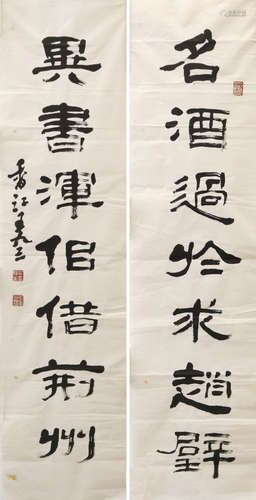 名酒過於求趙璧
異書渾侣借荊州
香江王九三